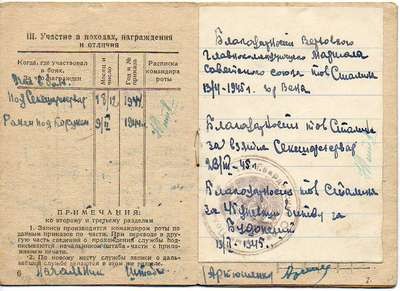 III. Участие в походах, награждения
и отличия
Когда, где участвовал
в боях,
награжден
Месяц и
число
Год и №
приказа
Расписка
командира
роты
Под Секешфехервар 18/12 1944
Ранен под 9/II 1944
ПРИМЕЧАНИЯ:
ко второму и третьему разделам
1. Записи производятся командиром роты по
данным приказов по части. При переводе в дру-
гую часть сведения о прохождении службы под-
писываются начальником штаба части с прило-
жением печати.
2. По новому месту службы записи о даль-
нейшей службе делаются в этом же
6 Начальник штаба
Благодарность Верховного
Главнокомандующего Маршала
Советского союза тов Сталина
13/4-1945г. гор Вена
Благодарность тов Сталина
за взятие Секешфехервар
23/III-45г.
Благодарность тов Сталина
за битву за
Будапешт
13/II-1945г.
7